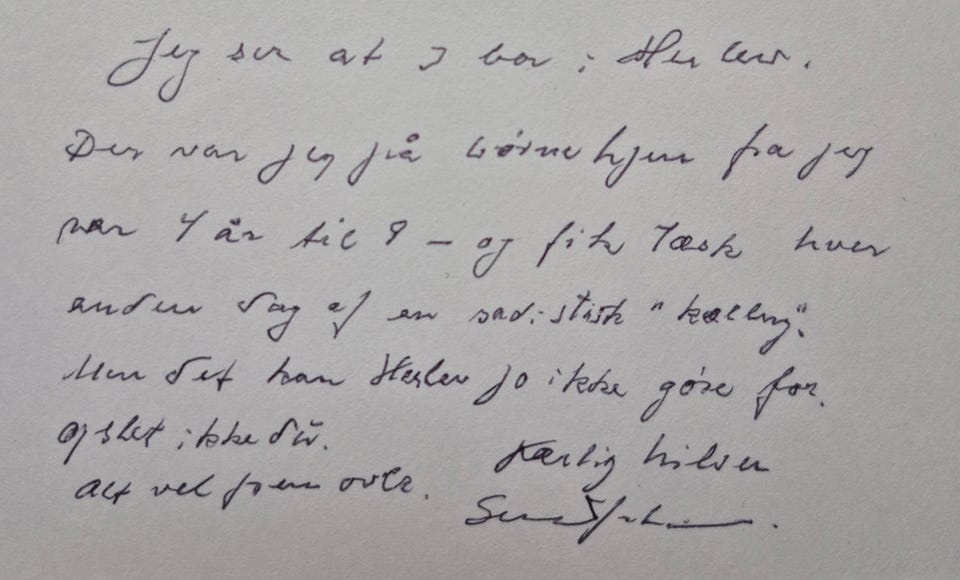 Jeg ser at I bor i Herlev.
Der var jeg på børnehjem fra jeg
var 4 år til 9 - og fik tæsk hver
anden dag af en sadistisk "kælling".
Men det kan Herlev jo ikke gøre for.
og slet ikke du.
Kærlig hilsen
Alt vel frem over.